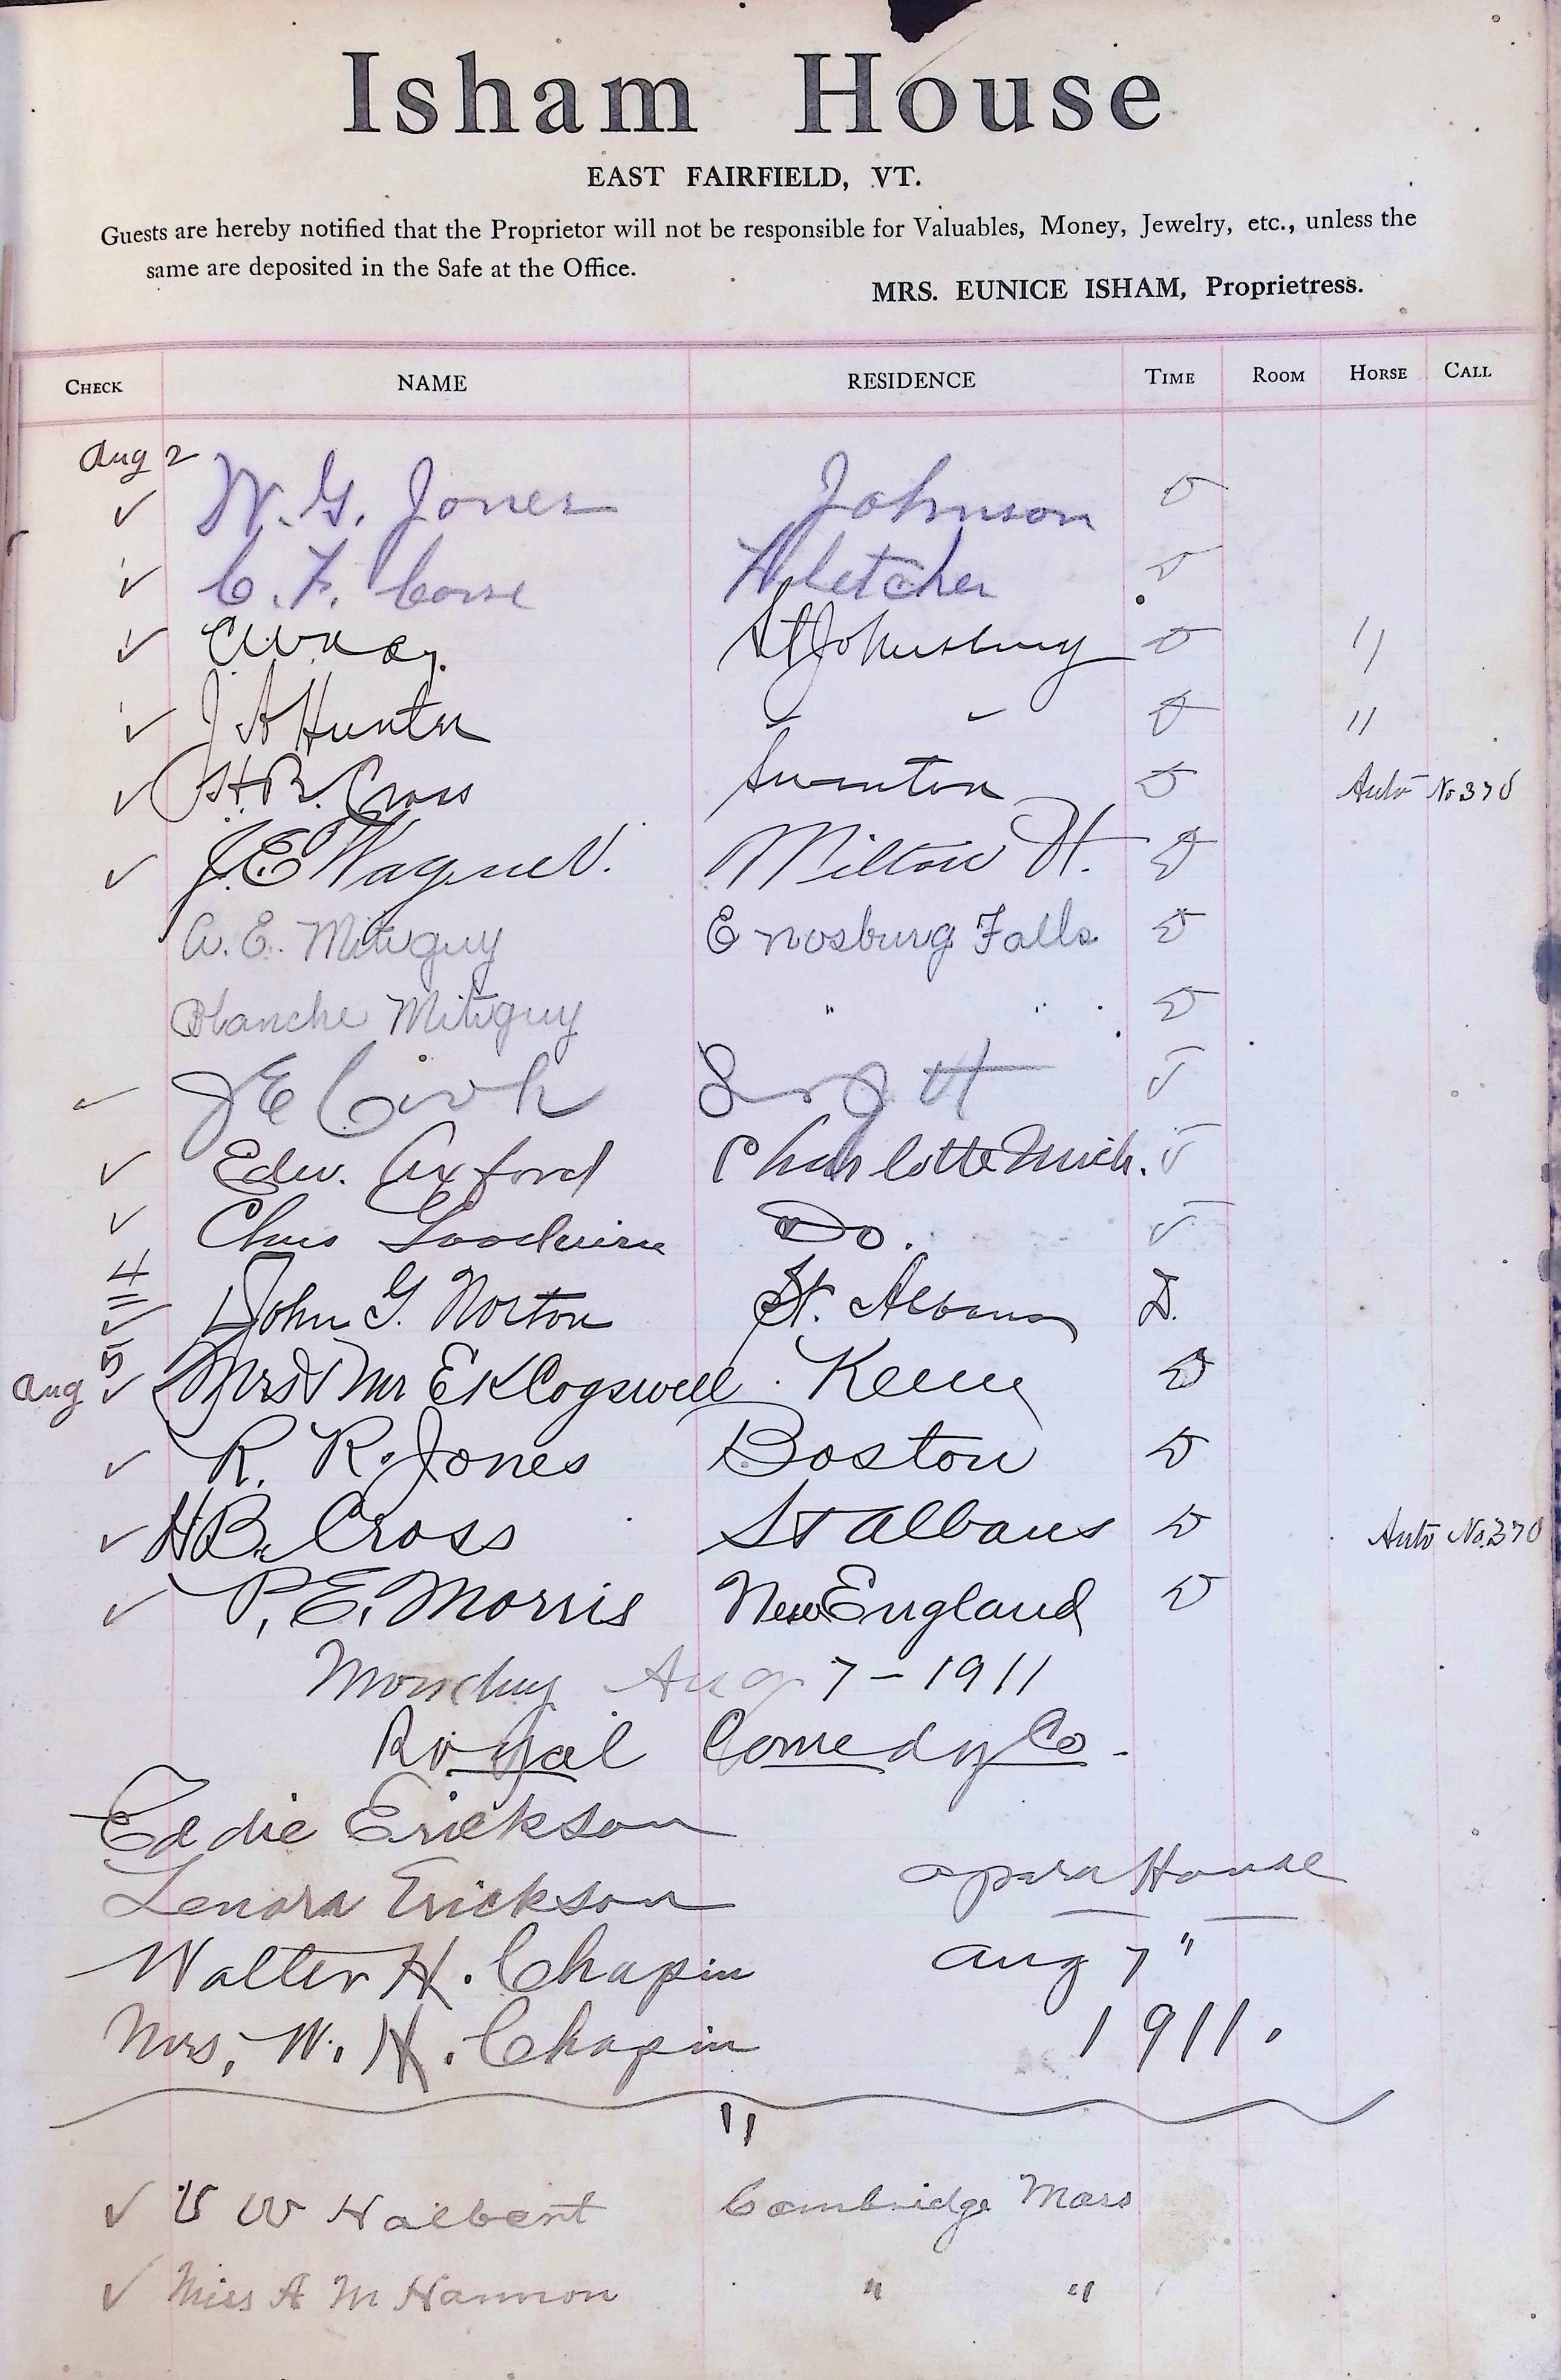 Isham House
EAST FAIRFIELD, VT.
Guests are hereby notified that the Proprietor will not be responsible for Valuables, Money, Jewelry, etc., unless the
same are deposited in the Safe at the Office.
MRS. EUNICE ISHAM, Proprietress.
CHECK NAME RESIDENCE TIME ROOM HORSE CALL
Aug 2
W. G. Jones Johnson
C. F. Corse Fletcher
St Johnsbury "
J A Hunter " " "
H. B. Cross Swanton Auto No 370
J. E. Wagner. Milton Vt.
A. E. Mitiguy Enosburg Falls
Blanche Mitiguy " "
J E Vt
Edw. Axford Charlotte Mich.
Chas Goodwin Do.
4
John G. Norton St. Albans D.
Aug 5 Mrs & Mr E K Cogswell Keene
R. R. Jones Boston
H B. Cross St Albans Auto No. 370
P. E. Morris New England
Monday Aug 7 - 1911
Royal Comedy Co.
Eddie Erickson
Lenora Erickson Opera House
Walter H. Chapin Aug 7"
Mrs. W. H. Chapin 1911.
"
W Halbert Cambridge Mass
Miss A M Hannon " "